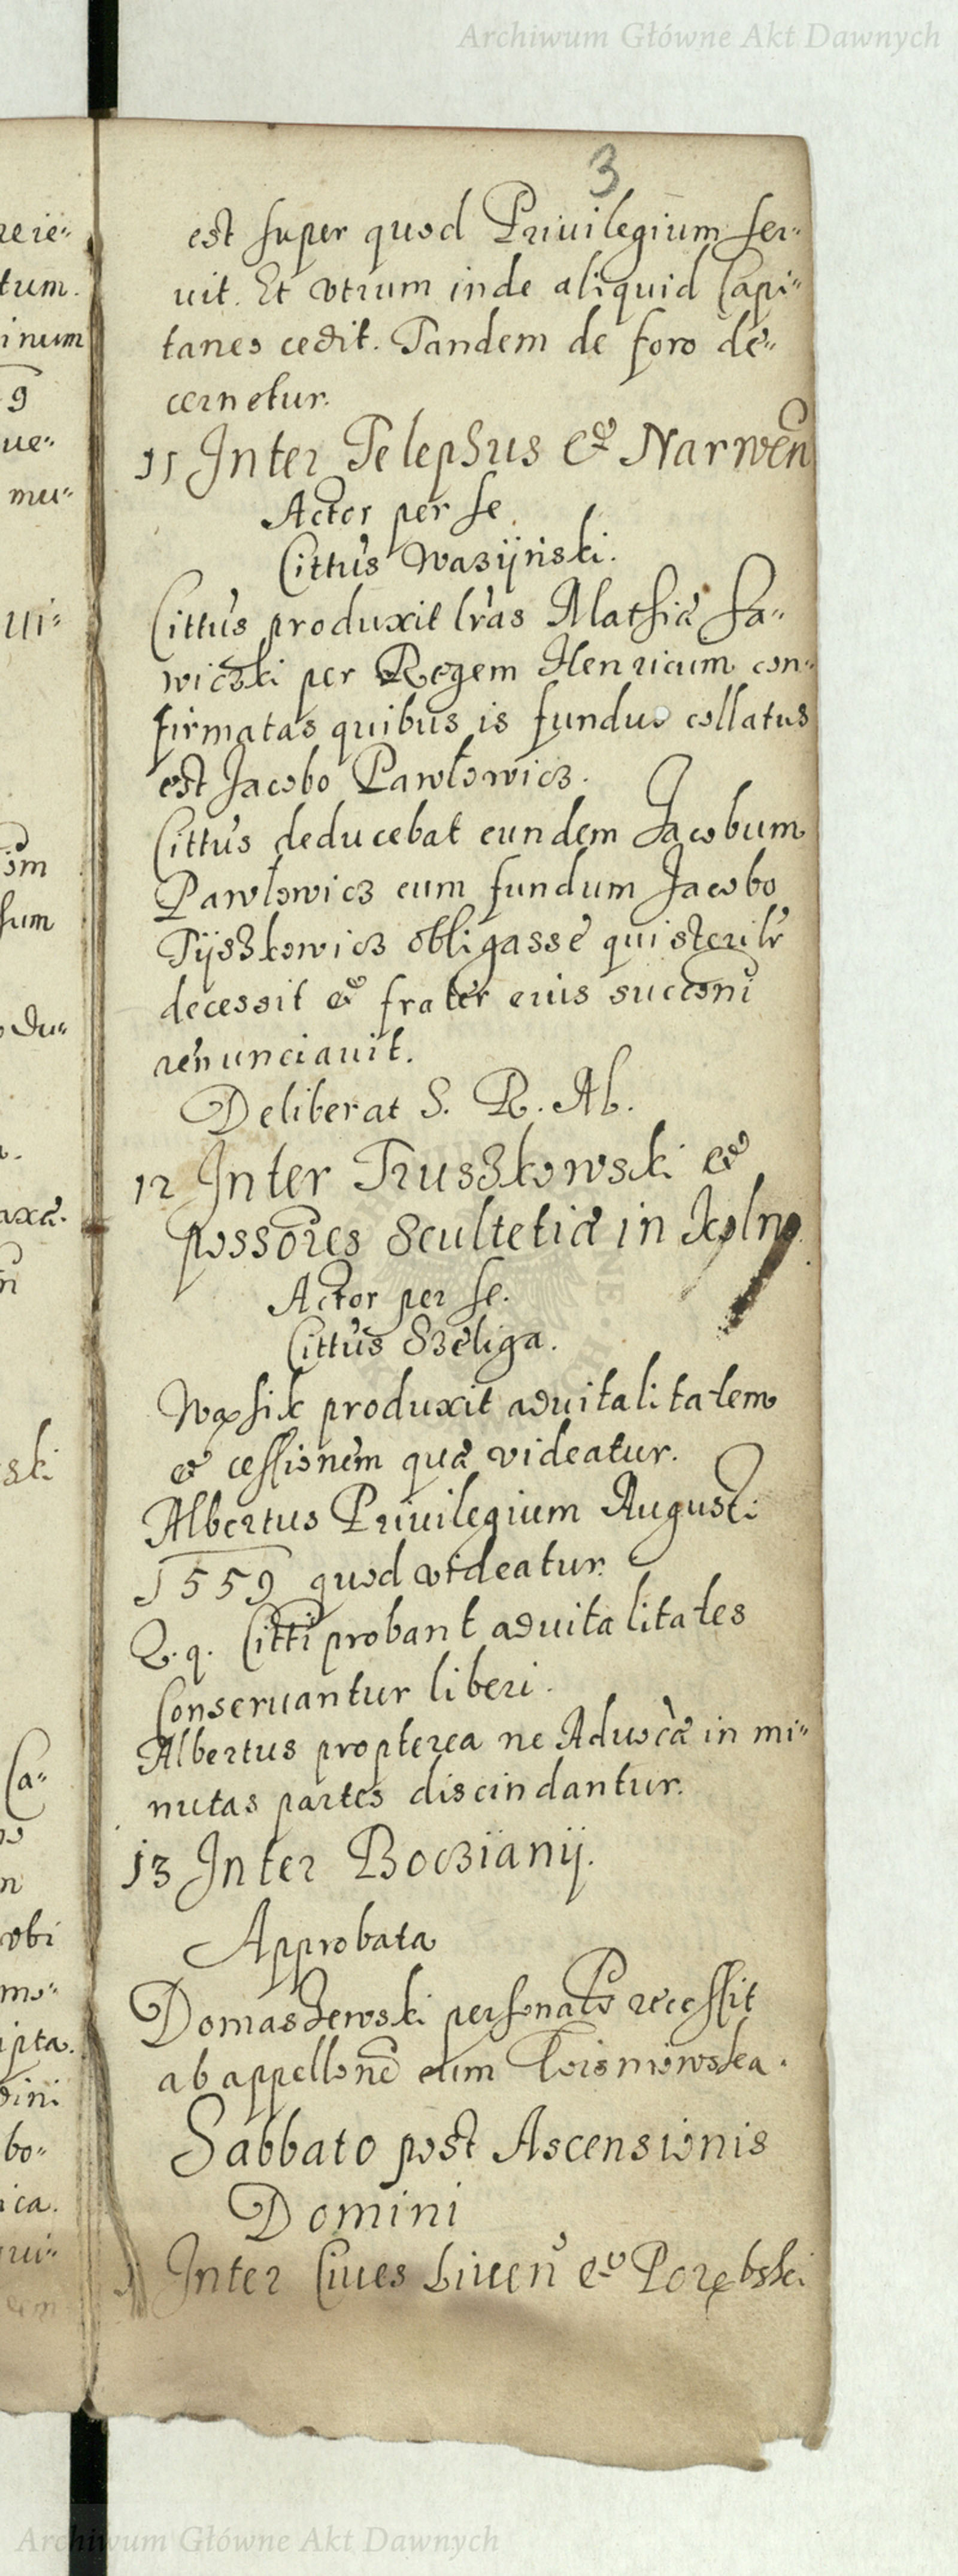 Archiwum Główne Akt Dawnych
3
est super quod Priuilegium ser-
uit. Et vtrum inde aliquid Capi-
taneo cedit. Tandem de foro de-
cernetur.
11 Inter Telephus et Narwen
Actor per se
Cittus Wazÿnski.
Cittus produxit lras Mathiæ Sa-
wiczki per Regem Henricum con-
firmatas quibus is fundus collatus
est Jacobo Pawłowicz.
Cittus deducebat eundem Jacobum
Pawłowicz eum fundum Jacobo
Tÿszkowicz obligasse qui sterilr
decessit et frater eius succoni
renunciauit.
Deliberat S. R. M.
12 Inter Truszkowski et
possores Scultetiæ in Kolno.
Actor per se.
Cittus Szeliga.
produxit aduitalitatem
et cessionem quæ videatur.
Albertus Priuilegium Augusti
1559 quod videatur.
Q. q. Citti probant aduitalitates
Conseruantur liberi.
Albertus propterea ne Aduocæ in mi-
nutas partes discindantur.
13 Inter Boczianÿ.
Approbata
Domaszewski personalr recessit
ab appellone cum
Sabbato post Ascensionis
Domini
1 Inter Ciues Liuen et Porębski
Archiwum Główne Akt Dawnych